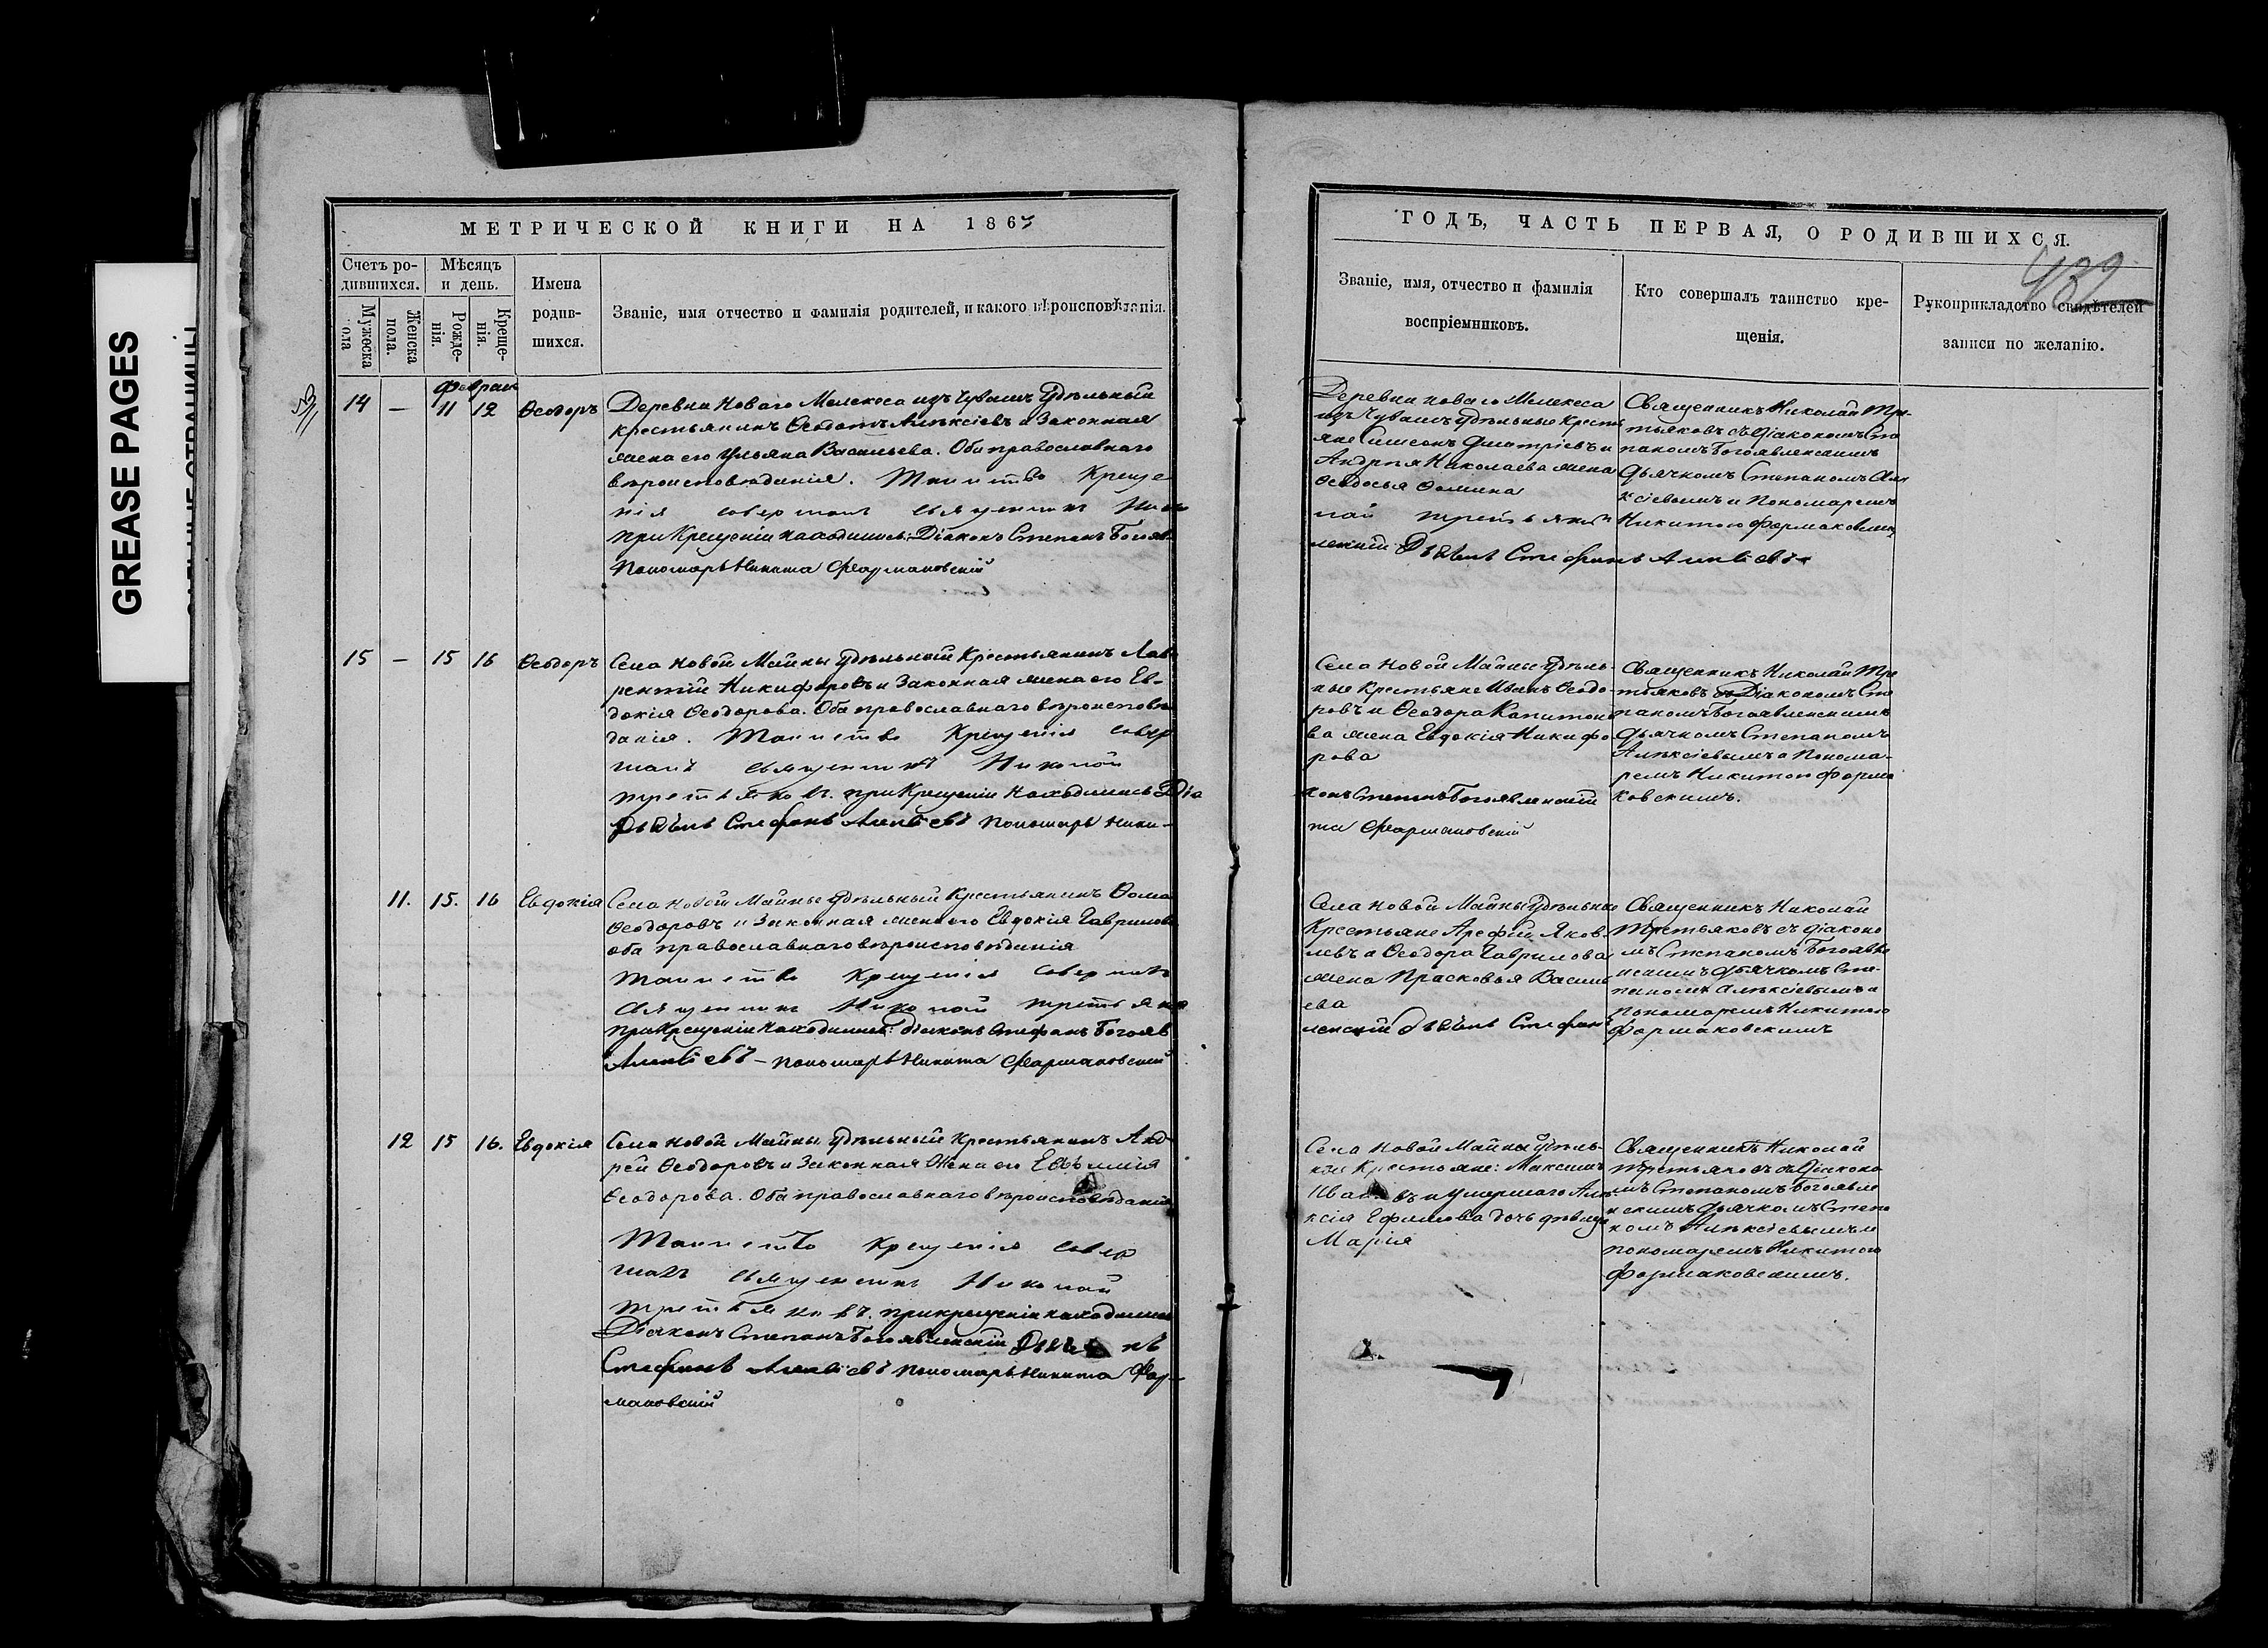 GREASE PAGES
МЕТРИЧЕСКОЙ КНИГИ НА 186
Счетъ ро-
дившихся.
Мѣсяцъ
и день.
Имена
родив-
шихся.
Званіе, имя отчество и фамилія родителей, и какого вѣроисповѣданія.
Мужеска
пола
Женска
пола.
Рожде-
нія.
Креще-
нія.
14 — 11 12 Ѳеодоръ
Деревни Новаго Мелекеса изъ Чувашъ Удѣльный
крестьянинъ Ѳедотъ Алексіевъ и Законная
жена его Ульяна Васильева. Оба православнаго
вѣроисповѣданія. Таинство Креще
нія совершалъ священникъ Нико
при Крещеніи находились: Діаконъ Степанъ Богояв
Пономарь Никита Фармаковскій
15 — 15 16 Ѳеодоръ
Села Новой Майны Удѣльный Крестьянинъ Лав
рентій Никифоровъ и Законная жена его Ев-
докія Ѳеодорова. Оба православнаго вѣроисповѣ
данія. Таинство Крещенія совер
шалъ священникъ Николай
Третьяковъ. при Крещеніи находились Діа
Стефанъ Алексѣевъ Пономарь Ники-
11. 15. 16 Евдокія
Села Новой Майны Удѣльный Крестьянинъ Ѳома
Ѳеодоровъ и Законная жена его Евдокія Гаврилова
оба православнаго вѣроисповѣданія
Таинство Крещенія совершалъ
священникъ Николай Третьяков
при Крещеніи находились: Діаконъ Стефанъ Богояв
Алексѣевъ – пономарь Никита Фармаковскій
12 15 16. Евдокія
Села Новой Майны Удѣльный Крестьянинъ Анд-
рей Ѳеодоровъ и Законная Жена его
Ѳеодорова. Оба православнаго вѣроисповѣданія
Таинство Крещенія совер
шалъ священникъ Николай
Третьяковъ. при крещеніи находились
Діаконъ Степанъ Богоявленскій
Стефанъ Алексѣевъ пономарь Никита Фар-
маковскій
ГОДЪ, ЧАСТЬ ПЕРВАЯ, О РОДИВШИХСЯ.
Званіе, имя, отчество и фамилія
воспріемниковъ.
Кто совершалъ таинство кре-
щенія.
Рукоприкладство свидѣтелей
записи по желанію.
Деревни новаго Мелекеса
изъ Чувашъ Удѣльные Кресть
яне Симеонъ Дмитріевъ и
Андрея Николаева жена
Ѳедосья Ѳомина
лай Третьяков
ленскій Стефанъ Алексѣевъ
Священникъ Николай Тре-
тьяковъ съ Діакономъ Сте
паномъ Богоявленскимъ
Дьячкомъ Степаномъ Але
ксіевымъ и Пономаремъ
Никитою Фармаковским
Села Новой Майны Удѣль-
ные Крестьяне Иванъ Ѳеодо-
ровъ и Ѳеодора Капитоно
ва жена Евдокія Никифо
рова
конъ Степанъ Богоявленскій
та Фармаковскій
Священникъ Николай Тре
тьяковъ съ Діакономъ Сте
паномъ Богоявленскимъ
Дьячкомъ Степаномъ
Алексіевымъ и Понома-
ремъ Никитою Фарма
ковскимъ.
Села Новой Майны Удѣльные
Крестьяне Арефій Яков-
левъ и Ѳеодора Гаврилова
жена Прасковья Василь
ева
ленскій Стефанъ
Священникъ Николай
Третьяковъ съ діаконо
мъ Степаномъ Богоявле
нскимъ дьячкомъ Сте-
паномъ Алексіевымъ и
пономаремъ Никитою
Фармаковскимъ
Села Новой Майны Удѣль-
ные Крестьяне: Максимъ
и умершаго Але
ксія Ефимова дочь дѣвица
Марія
Священникъ Николай
Третьяковъ съ Діаконо
мъ Степаномъ Богоявле
нскимъ дьячкомъ Степа
номъ Алексіевымъ и
пономаремъ Никитою
Фармаковскимъ.